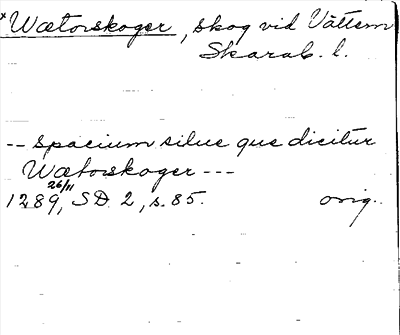 *Wætorskoger, skog vid Vättern
Skarab. l.
-- spacium silue que dicitur
Wætorskoger ---
26/11
1289, SD 2, s. 85. orig.